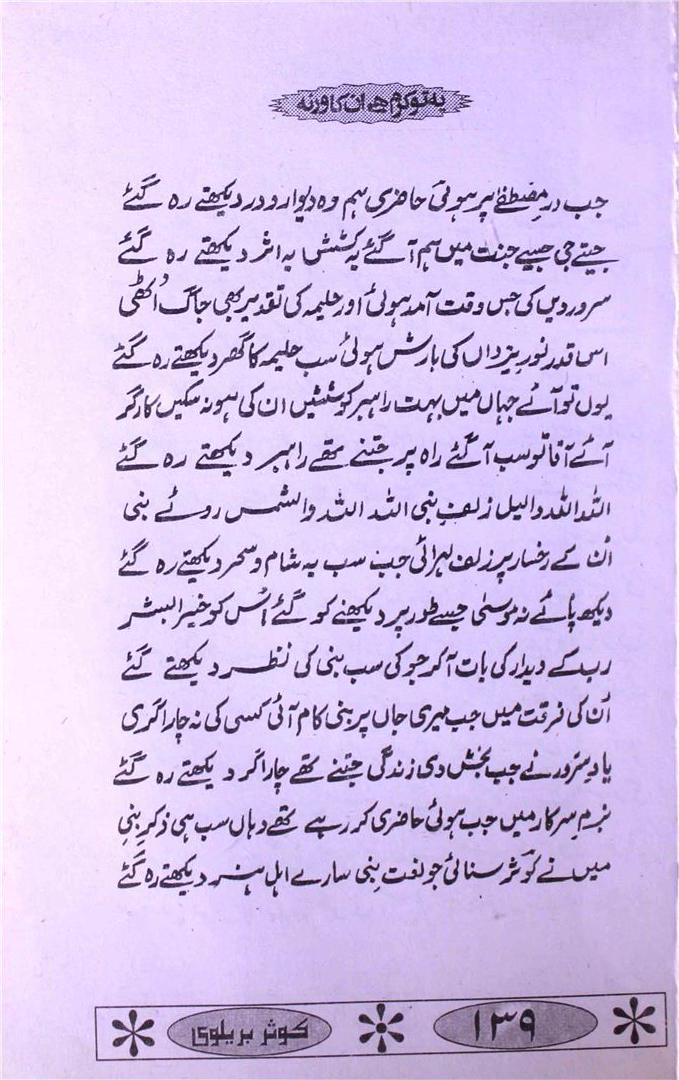 یہ تو کرم ھے ان کا ورنہ
جب درِ مصطفےٰ پر ہوئی حاضری ہم وہ دیوار و در دیکھتے رہ گئے
جیتے جی جیسے جنت میں ہم آ گئے یہ کشش یہ اثر دیکھتے رہ گئے
سرور دیں کی جس وقت آمد ہوئی اور حلیمہ کی تقدیر بھی جاگ اُٹھی
اس قدر نور یزداں کی بارش ہوئی سب حلیمہ کا گھر دیکھتے رہ گئے
یوں تو آئے جہاں میں بہت راہبر کوششیں ان کی ہو نہ سکیں کارگر
آئے آقا تو سب آ گئے راہ پر جتنے تھے راہبر دیکھتے رہ گئے
اللہ اللہ والیل زلفِ نبی اللہ اللہ والشمس روئے نبی
اُن کے رخسار پر زلف لہرائی جب سب یہ شام و سحر دیکھتے رہ گئے
دیکھ پائے نہ موسیٰ جسے طور پر دیکھنے کو گئے اُس کو خیر البشر
رب کے دیدار کی بات آکر جو کی سب نبی کی نظر دیکھتے گئے
اُن کی فرقت میں جب میری جاں پر بنی کام آئی کسی کی نہ چارا گری
یادِ سرور نے جب بخش دی زندگی جتنے تھے چارا گر دیکھتے رہ گئے
بزمِ سرکار میں جب ہوئی حاضری کر رہے تھے وہاں سب ہی ذکرِ نبی
میں نے کوثر سنائی جو نعت نبی سارے اہل ہنر دیکھتے رہ گئے
کوثر بریلوی
۱۳۹